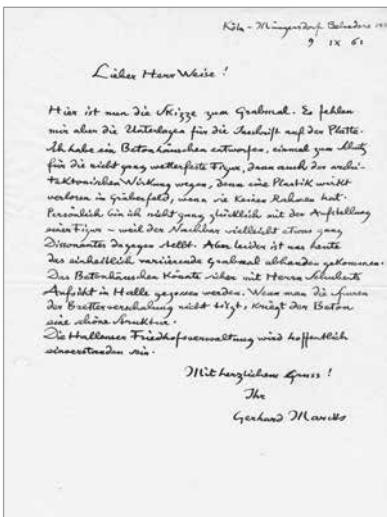 Köln-Müngersdorf Belvedere
9 IX 61
Lieber Herr Weise!
Hier ist nun die Skizze zum Grabmal. Es fehlen
mir aber die Unterlagen für die Inschrift auf der Platte.
Ich habe ein Betonhäuschen entworfen, einmal zum Schutz
für die nicht ganz wetterfeste Figur, dann auch der archi-
tektonischen Wirkung wegen, denn eine Plastik wirkt
verloren im Gräberfeld, wenn sie keinen Rahmen hat.
Persönlich bin ich nicht ganz glücklich mit der Aufstellung
einer Figur – weil der Nachbar vielleicht etwas ganz
Dissonantes dagegen stellt. Aber leider ist uns heute
das einheitlich variierende Grabmal abhanden gekommen.
Das Betonhäuschen könnte sicher mit Herrn Schuberts
Aufsicht in Halle gegossen werden. Wenn man die Spuren
der Bretterverschalung nicht tilgt, kriegt der Beton
eine schöne Struktur.
Die Hallenser Friedhofsverwaltung wird hoffentlich
einverstanden sein.
Mit herzlichem Gruss!
Ihr
Gerhard Marcks